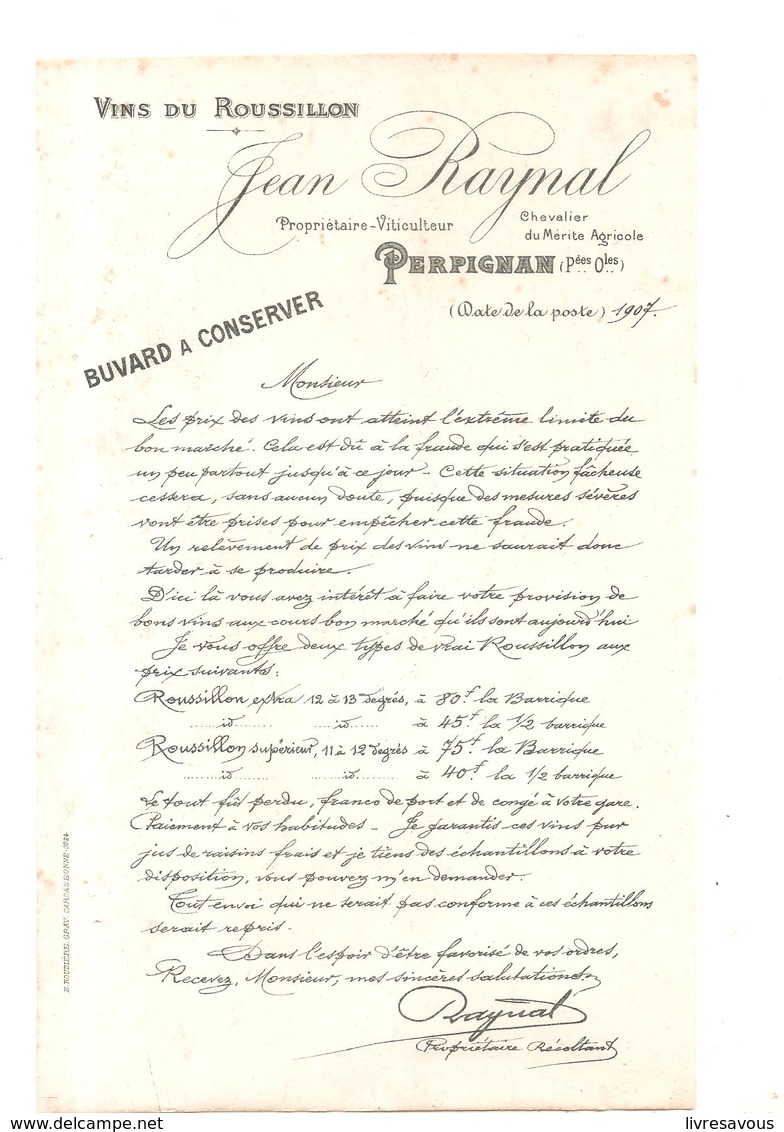 VINS DU ROUSSILLON
Jean Raynal
Propriétaire-Viticulteur
Chevalier
du Mérite Agricole
PERPIGNAN (Pées Oles)
(Date de la poste) 1907.
BUVARD A CONSERVER
Monsieur
Les prix des vins ont atteint l'extrême limite du
bon marché. Cela est dû à la fraude qui s'est pratiquée
un peu partout jusqu'à ce jour - Cette situation fâcheuse
cessera, sans aucun doute, puisque des mesures sévères
vont être prises pour empêcher cette fraude.
Un relèvement de prix des vins ne saurait donc
tarder à se produire.
D'ici là vous avez intérêt à faire votre provision de
bons vins aux cours bon marché qu'ils sont aujourd'hui
Je vous offre deux types de vrai Roussillon aux
prix suivants:
Roussillon extra 12 à 13 degrés, à 80f. la Barrique
......id...... ......id...... à 45f. la 1/2 barrique
Roussillon supérieur, 11 à 12 degrés à 75f. la Barrique
......id...... ......id...... à 40f. la 1/2 barrique
Le tout fût perdu, franco de port et de congé à votre gare.
Paiement à vos habitudes - Je garantis ces vins pur
jus de raisins frais et je tiens des échantillons à votre
disposition, vous pouvez m'en demander.
Tout envoi qui ne serait pas conforme à ces échantillons
serait repris.
Dans l'espoir d'être favorisé de vos ordres,
Recevez, Monsieur, mes sincères salutations.
Raynal
Propriétaire Récoltant
ROUDIÈRE, GRAV. CARCASSONNE-3024
livresavous